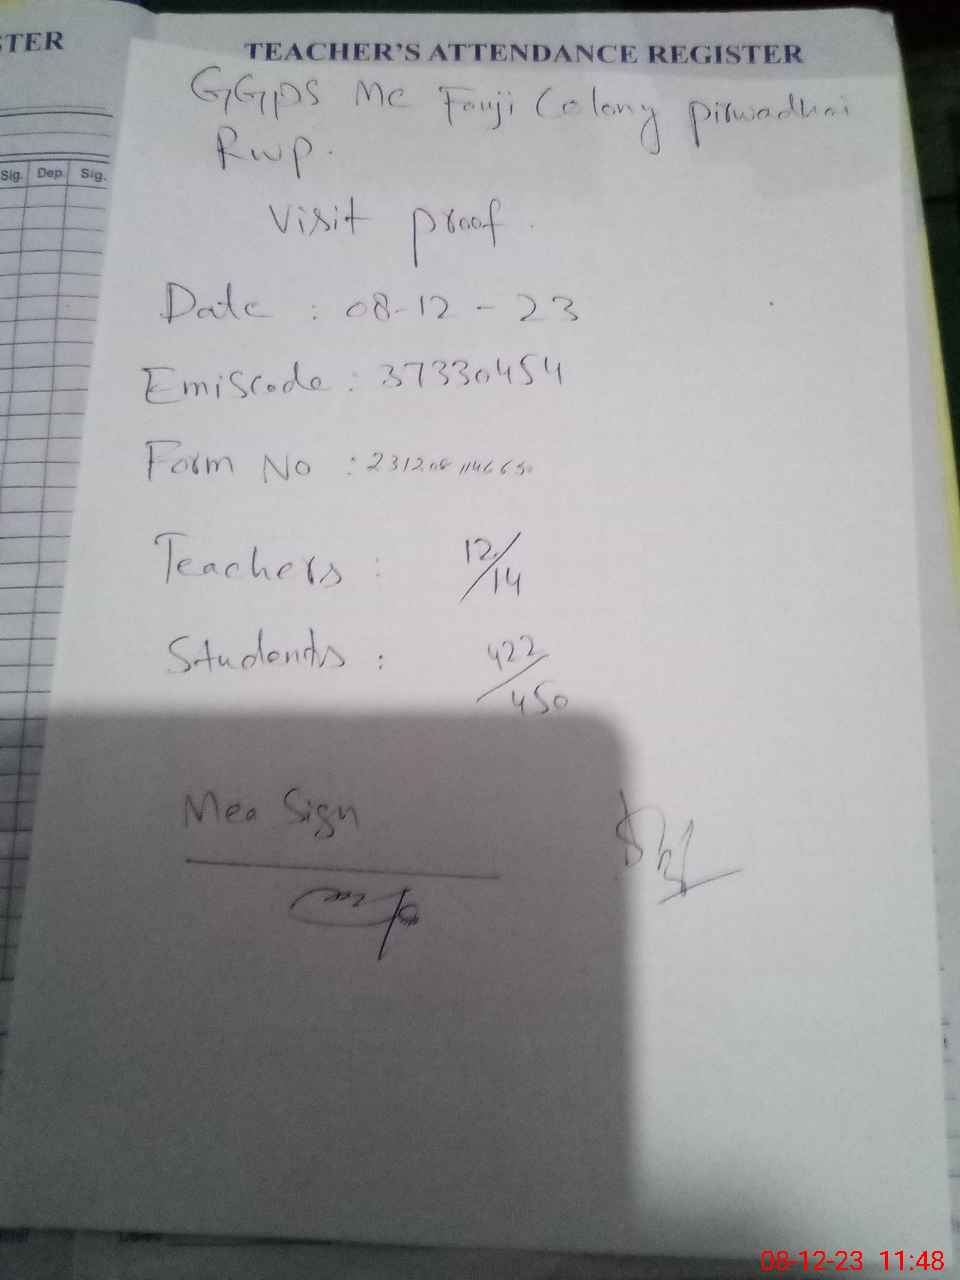 TER
TEACHER'S ATTENDANCE REGISTER
GGPS MC Fauji Colony pirwadhai
Rwp.
Visit proof.
Sig. Dep. Sig.
Date : 08-12-23
Emiscode : 37330454
Form No :
Teachers : 12/14
Students : 422/450
Mea Sign
08-12-23 11:48